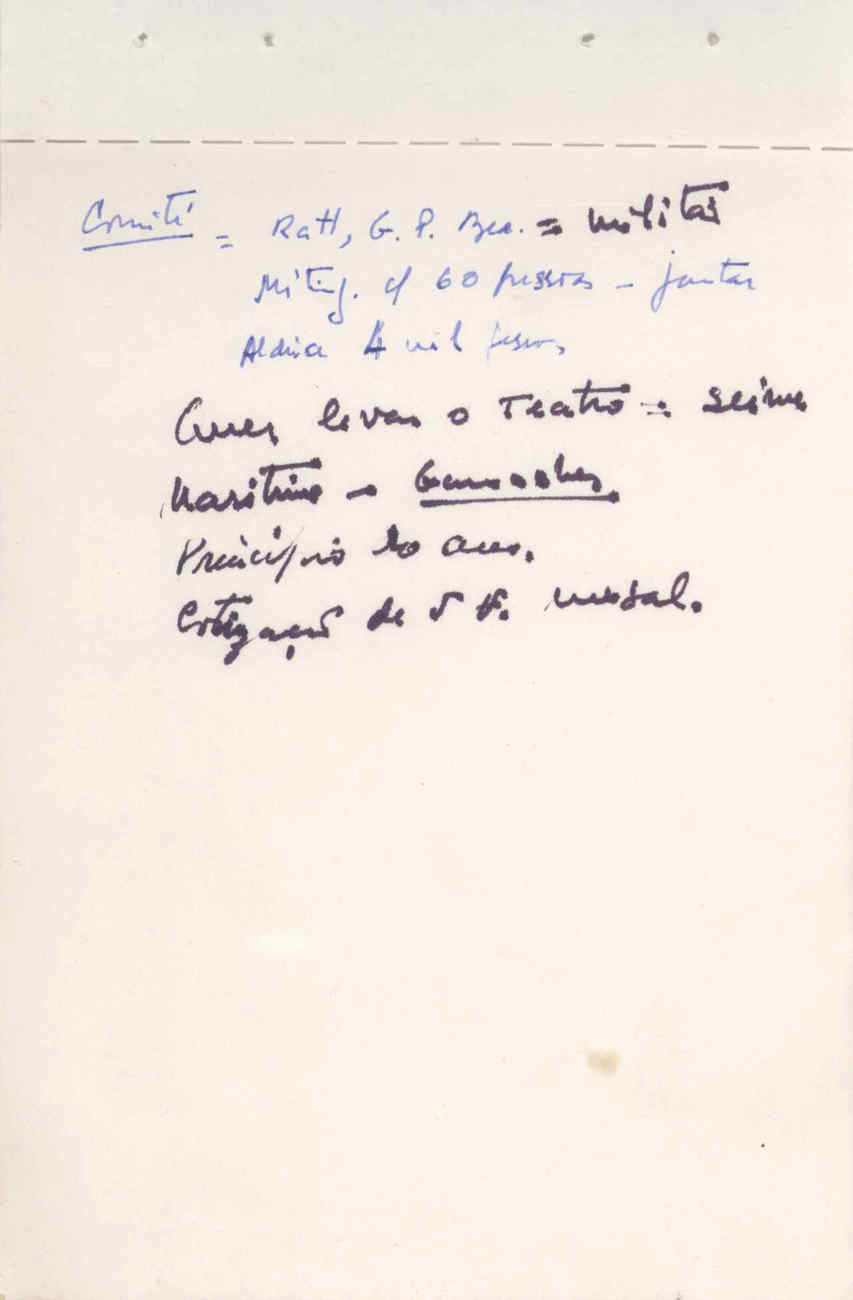 Comité = Ratt, G. P. Bea. = militar
Miting. c/ 60 pessoas - jantar
Aldeia 4 mil pessoas
Quer levar o Teatro = Seine
Maritime -
Princípio do ano.
Cotização de 5 F. mensal.